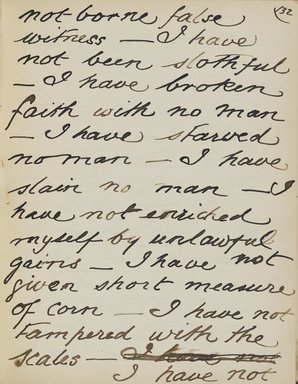 132
not borne false
witness — I have
not been slothful
— I have broken
faith with no man
— I have starved
no man — I have
slain no man — I
have not enriched
myself by unlawful
gains — I have not
given short measure
of corn — I have not
tampered with the
scales — I have not
I have not